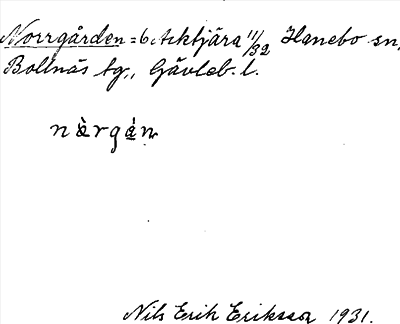 Norrgården = 6 Acktjära 11/32 Hanebo sn,
Bollnäs tg., Gävleb. l.
nàrgán
Nils Erik Eriksson 1931.